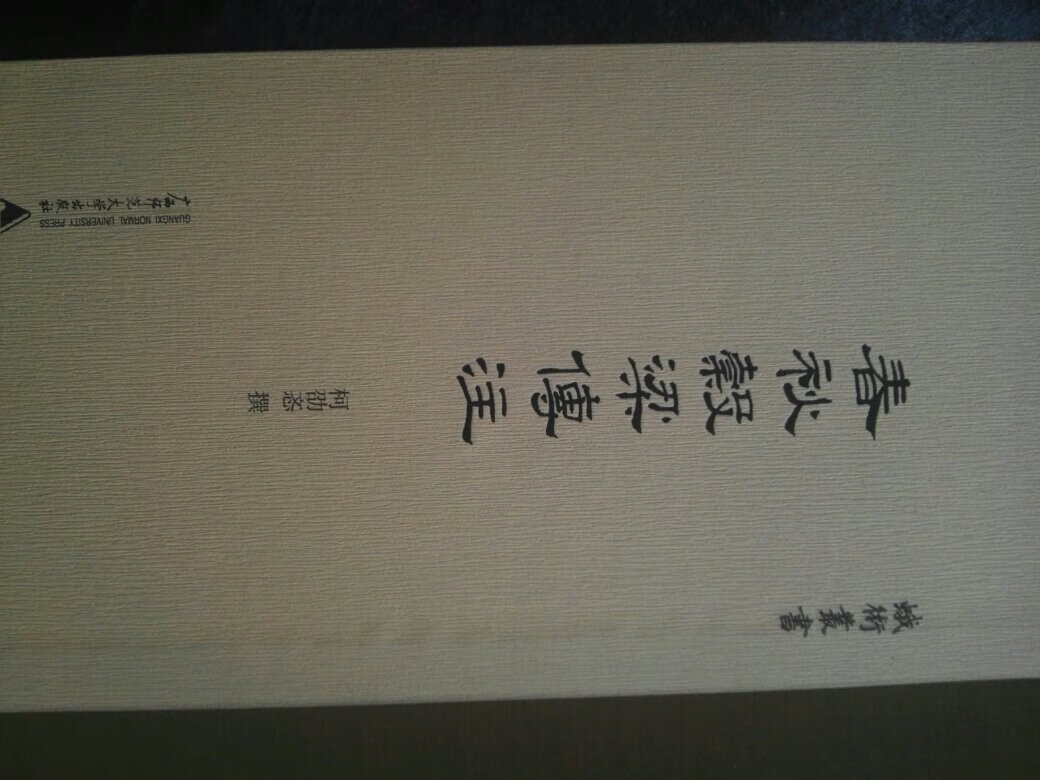 蛾術叢書
春秋穀梁傳注
柯劭忞 撰
广西师范大学出版社
GUANGXI NORMAL UNIVERSITY PRESS